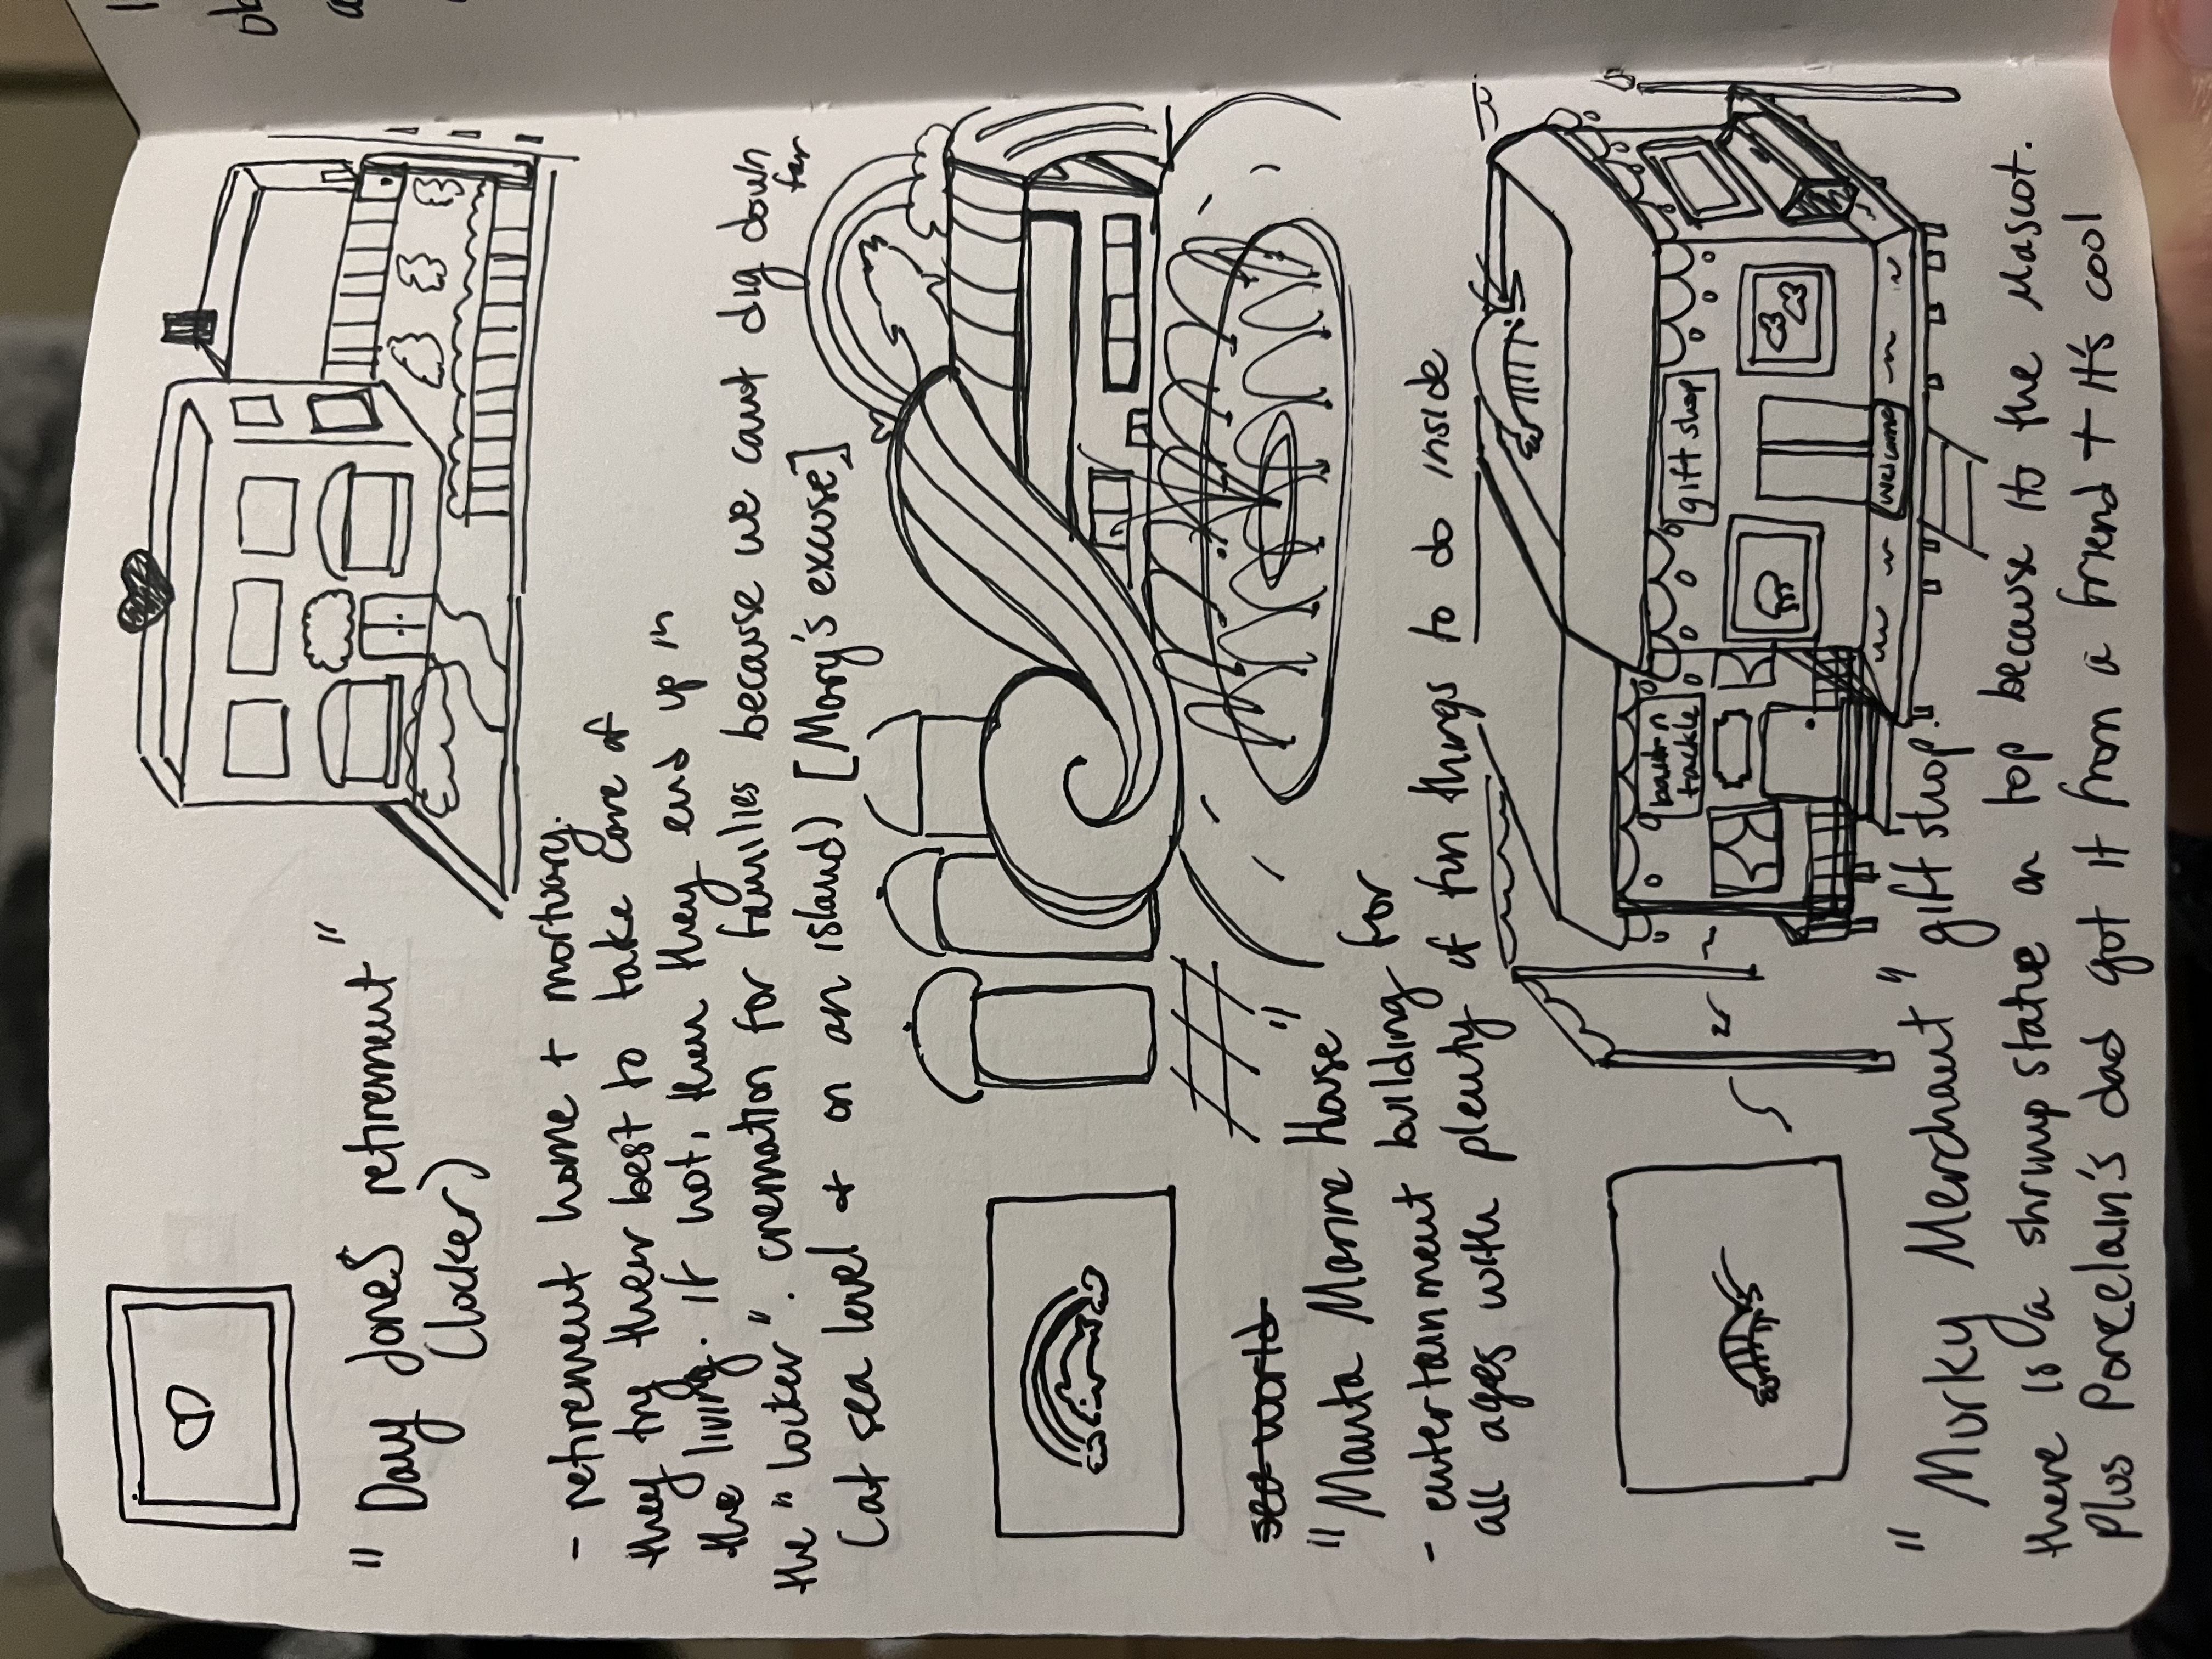 "Davy Jones retirement"
(locker)
- retirement home + mortuary.
they try their best to take care of
the living. if not, then they end up in
the "locker". cremation for families because we cant dig down
far
(at sea level + on an island) [Mary's excuse]
sea world
"Manta Marine House"
- entertainment building for
all ages with plenty of fun things to do inside
bait n
tackle
gift shop
welcome
"Murky Merchant" gift shop.
there is a shrimp statue on top because its the mascot.
Plus Porcelain's dad got it from a friend + it's cool